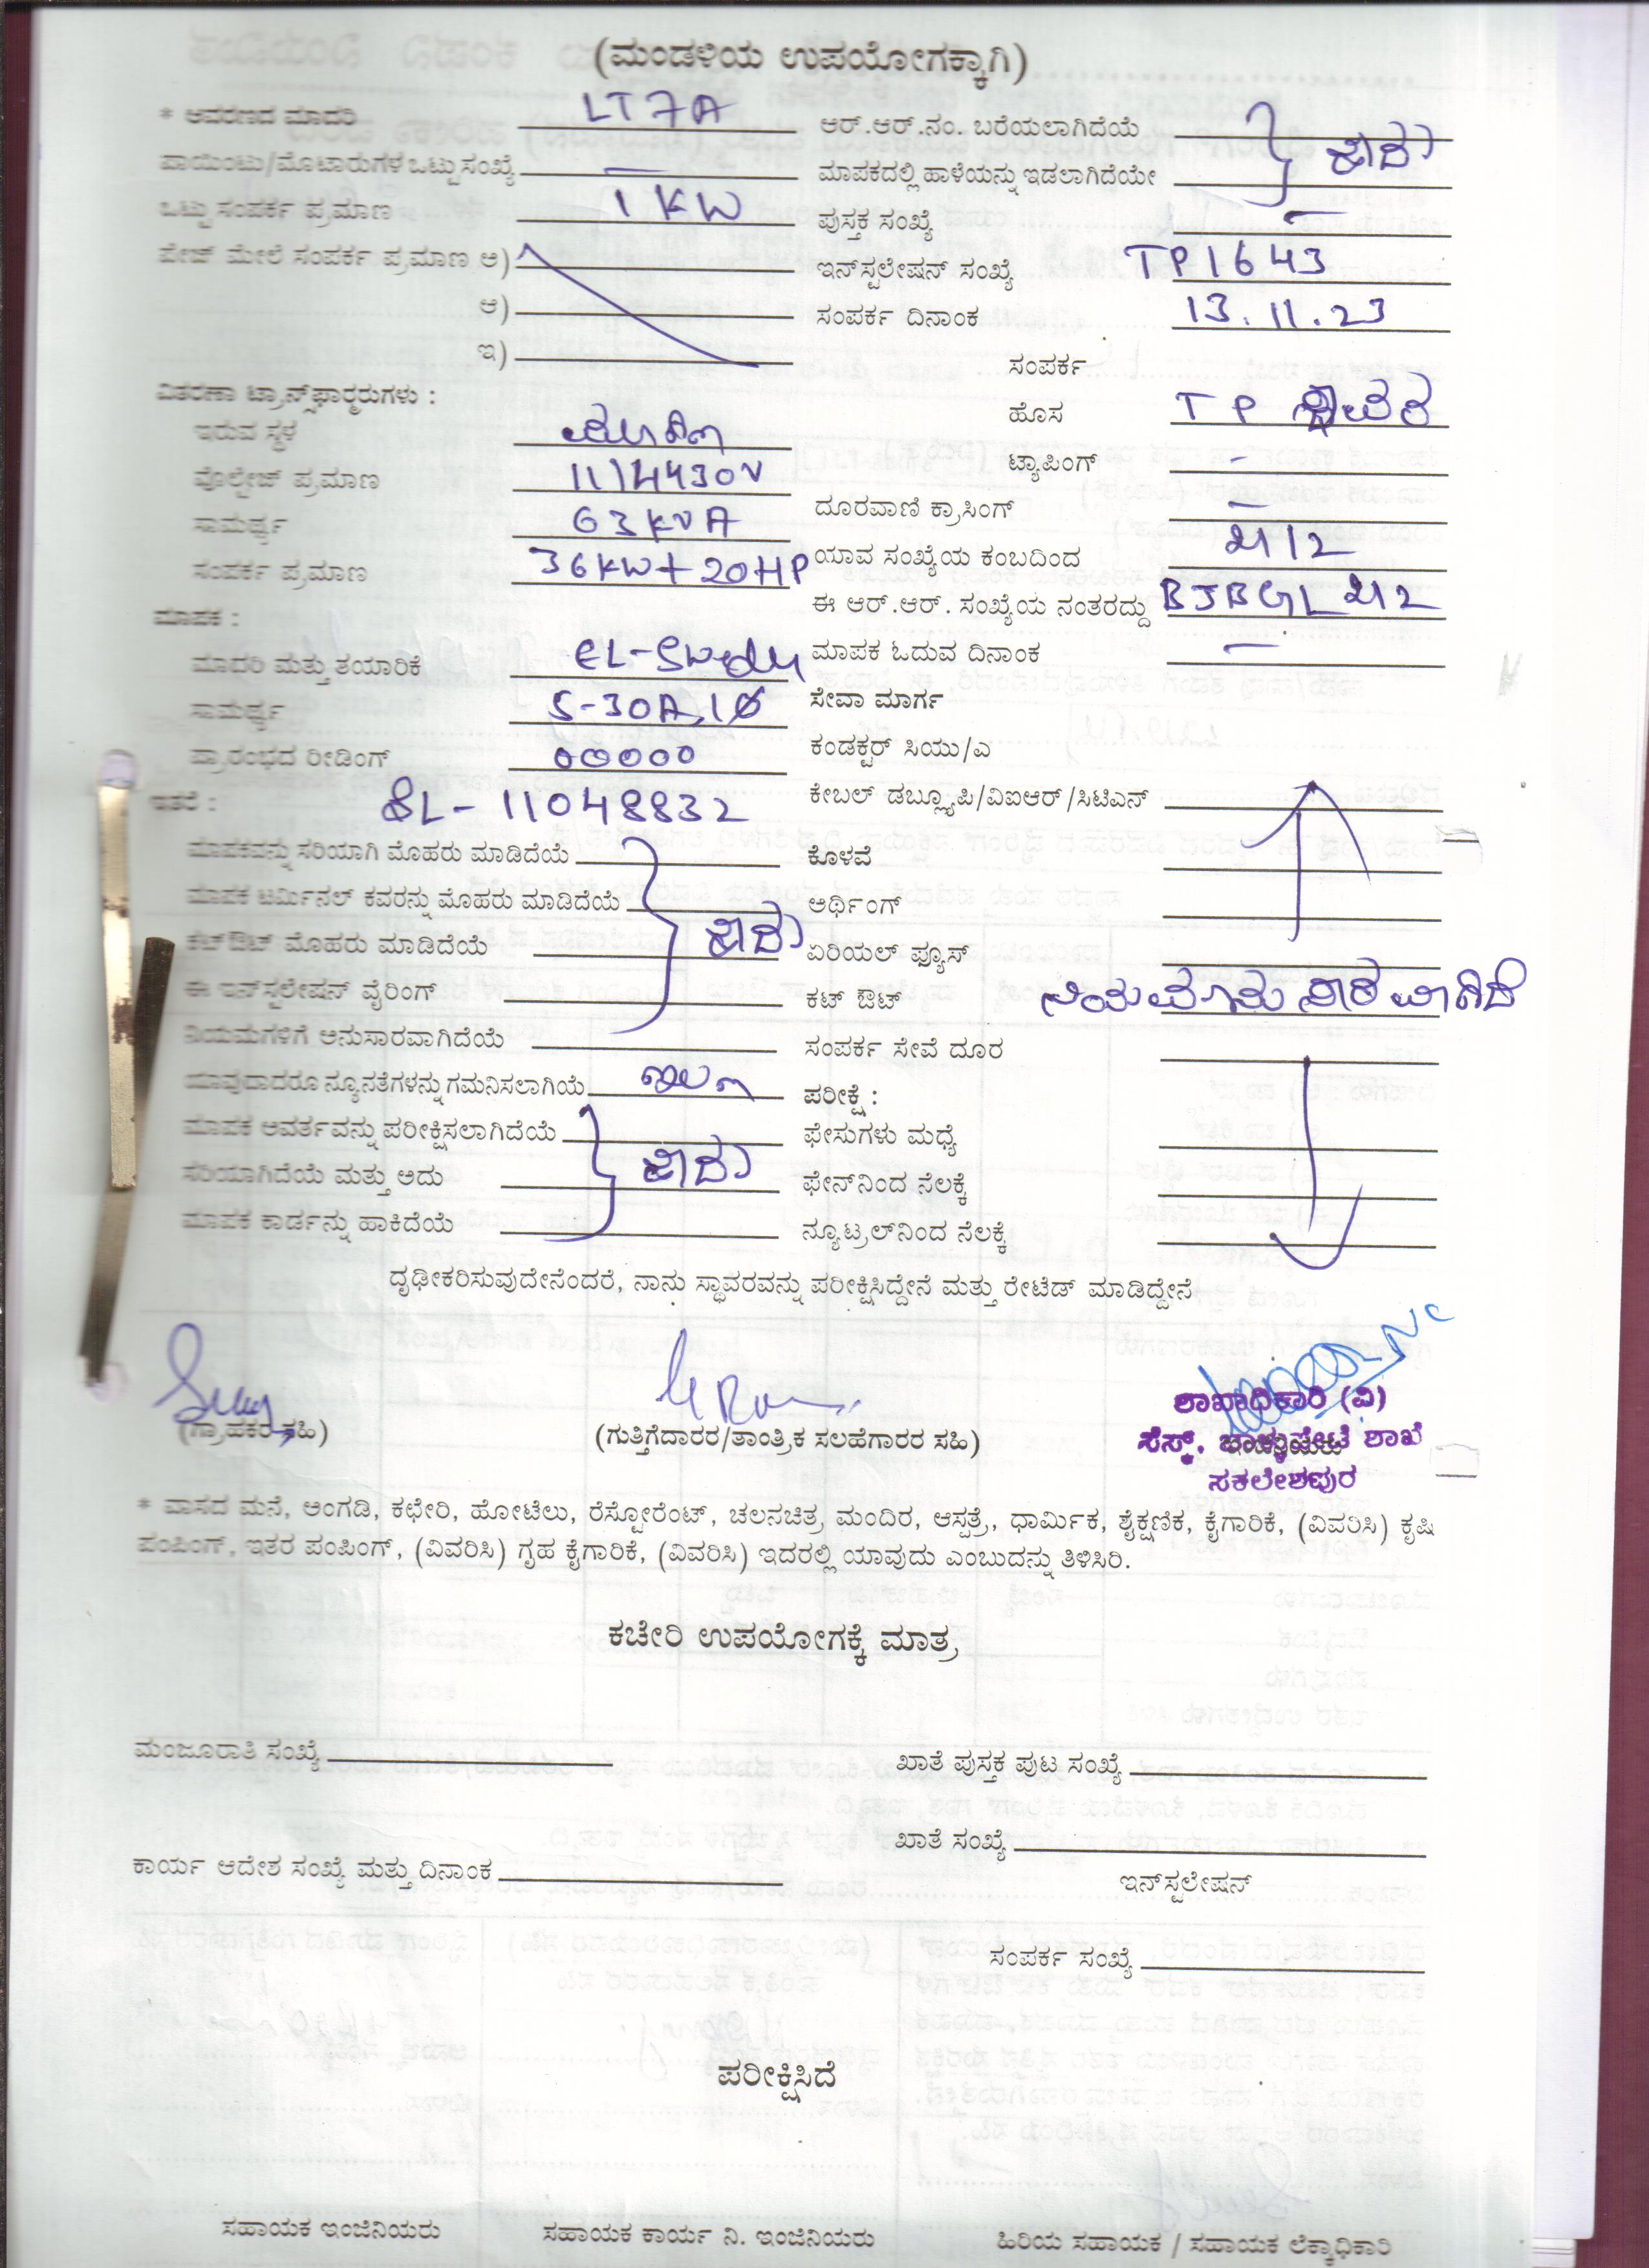 (ಮಂಡಳಿಯ ಉಪಯೋಗಕ್ಕಾಗಿ)
* ಆವರಣದ ಮಾದರಿ LT7A
ಪಾಯಿಂಟು/ಮೊಟಾರುಗಳ ಒಟ್ಟು ಸಂಖ್ಯೆ —
ಒಟ್ಟು ಸಂಪರ್ಕ ಪ್ರಮಾಣ 1 KW
ಪೇಜ್ ಮೇಲೆ ಸಂಪರ್ಕ ಪ್ರಮಾಣ ಅ)
ಆ)
ಇ)
ವಿತರಣಾ ಟ್ರಾನ್ಸ್‌ಫಾರ್‍ಮರುಗಳು :
ಇರುವ ಸ್ಥಳ
ವೊಲ್ಟೇಜ್ ಪ್ರಮಾಣ
ಸಾಮರ್ಥ್ಯ 63 KVA
ಸಂಪರ್ಕ ಪ್ರಮಾಣ 36KW + 20HP
ಮಾಪಕ :
ಮಾದರಿ ಮತ್ತು ತಯಾರಿಕೆ EL-Swedy
ಸಾಮರ್ಥ್ಯ 5-30A, 1Ø
ಪ್ರಾರಂಭದ ರೀಡಿಂಗ್ 00000
ಇತರೆ : SL- 11048832
ಮಾಪಕವನ್ನು ಸರಿಯಾಗಿ ಮೊಹರು ಮಾಡಿದೆಯೆ
ಮಾಪಕ ಟರ್ಮಿನಲ್ ಕವರನ್ನು ಮೊಹರು ಮಾಡಿದೆಯೆ
ಕಟ್‌ಔಟ್ ಮೊಹರು ಮಾಡಿದೆಯೆ ಹೌದು
ಈ ಇನ್‌ಸ್ಟಲೇಷನ್ ವೈರಿಂಗ್
ನಿಯಮಗಳಿಗೆ ಅನುಸಾರವಾಗಿದೆಯೆ
ಯಾವುದಾದರೂ ನ್ಯೂನತೆಗಳನ್ನು ಗಮನಿಸಲಾಗಿಯೆ ಇಲ್ಲ
ಮಾಪಕ ಆವರ್ತವನ್ನು ಪರೀಕ್ಷಿಸಲಾಗಿದೆಯೆ
ಸರಿಯಾಗಿದೆಯೆ ಮತ್ತು ಅದು ಹೌದು
ಮಾಪಕ ಕಾರ್ಡನ್ನು ಹಾಕಿದೆಯೆ
ಆರ್.ಆರ್.ನಂ. ಬರೆಯಲಾಗಿದೆಯೆ ಹೌದು
ಮಾಪಕದಲ್ಲಿ ಹಾಳೆಯನ್ನು ಇಡಲಾಗಿದೆಯೇ
ಪುಸ್ತಕ ಸಂಖ್ಯೆ —
ಇನ್‌ಸ್ಟಲೇಷನ್ ಸಂಖ್ಯೆ TP1643
ಸಂಪರ್ಕ ದಿನಾಂಕ 13.11.23
ಸಂಪರ್ಕ
ಹೊಸ TP ಸ್ಥಾವರ
ಟ್ಯಾಪಿಂಗ್ -
ದೂರವಾಣಿ ಕ್ರಾಸಿಂಗ್ —
ಯಾವ ಸಂಖ್ಯೆಯ ಕಂಬದಿಂದ
ಈ ಆರ್.ಆರ್. ಸಂಖ್ಯೆಯ ನಂತರದ್ದು
ಮಾಪಕ ಓದುವ ದಿನಾಂಕ —
ಸೇವಾ ಮಾರ್ಗ
ಕಂಡಕ್ಟರ್ ಸಿಯು/ಎ
ಕೇಬಲ್ ಡಬ್ಲ್ಯೂಪಿ/ವಿಐಆರ್/ಸಿಟಿಎನ್
ಕೊಳವೆ
ಅರ್ಥಿಂಗ್
ಏರಿಯಲ್ ಫ್ಯೂಸ್
ಕಟ್ ಔಟ್ ನಿಯಮಾನುಸಾರವಾಗಿದೆ
ಸಂಪರ್ಕ ಸೇವೆ ದೂರ
ಪರೀಕ್ಷೆ :
ಫೇಸುಗಳು ಮಧ್ಯೆ
ಫೇನ್‌ನಿಂದ ನೆಲಕ್ಕೆ
ನ್ಯೂಟ್ರಲ್‌ನಿಂದ ನೆಲಕ್ಕೆ
ದೃಢೀಕರಿಸುವುದೇನೆಂದರೆ, ನಾನು ಸ್ಥಾವರವನ್ನು ಪರೀಕ್ಷಿಸಿದ್ದೇನೆ ಮತ್ತು ರೇಟೆಡ್ ಮಾಡಿದ್ದೇನೆ
(ಗ್ರಾಹಕರ ಸಹಿ)
(ಗುತ್ತಿಗೆದಾರರ/ತಾಂತ್ರಿಕ ಸಲಹೆಗಾರರ ಸಹಿ)
ಶಾಖಾಧಿಕಾರಿ (ವಿ)
ಸೆಸ್ಕ್, ಬಾಳ್ಳುಪೇಟೆ ಶಾಖೆ
ಸಕಲೇಶಪುರ
* ವಾಸದ ಮನೆ, ಅಂಗಡಿ, ಕಛೇರಿ, ಹೋಟೆಲು, ರೆಸ್ಟೋರೆಂಟ್, ಚಲನಚಿತ್ರ ಮಂದಿರ, ಆಸ್ಪತ್ರೆ, ಧಾರ್ಮಿಕ, ಶೈಕ್ಷಣಿಕ, ಕೈಗಾರಿಕೆ, (ವಿವರಿಸಿ) ಕೃಷಿ
ಪಂಪಿಂಗ್, ಇತರ ಪಂಪಿಂಗ್, (ವಿವರಿಸಿ) ಗೃಹ ಕೈಗಾರಿಕೆ, (ವಿವರಿಸಿ) ಇದರಲ್ಲಿ ಯಾವುದು ಎಂಬುದನ್ನು ತಿಳಿಸಿರಿ.
ಕಚೇರಿ ಉಪಯೋಗಕ್ಕೆ ಮಾತ್ರ
ಮಂಜೂರಾತಿ ಸಂಖ್ಯೆ
ಖಾತೆ ಪುಸ್ತಕ ಪುಟ ಸಂಖ್ಯೆ
ಖಾತೆ ಸಂಖ್ಯೆ
ಕಾರ್ಯ ಆದೇಶ ಸಂಖ್ಯೆ ಮತ್ತು ದಿನಾಂಕ
ಇನ್‌ಸ್ಟಲೇಷನ್
ಸಂಪರ್ಕ ಸಂಖ್ಯೆ
ಪರೀಕ್ಷಿಸಿದೆ
ಸಹಾಯಕ ಇಂಜಿನಿಯರು ಸಹಾಯಕ ಕಾರ್ಯ ನಿ. ಇಂಜಿನಿಯರು ಹಿರಿಯ ಸಹಾಯಕ / ಸಹಾಯಕ ಲೆಕ್ಕಾಧಿಕಾರಿ